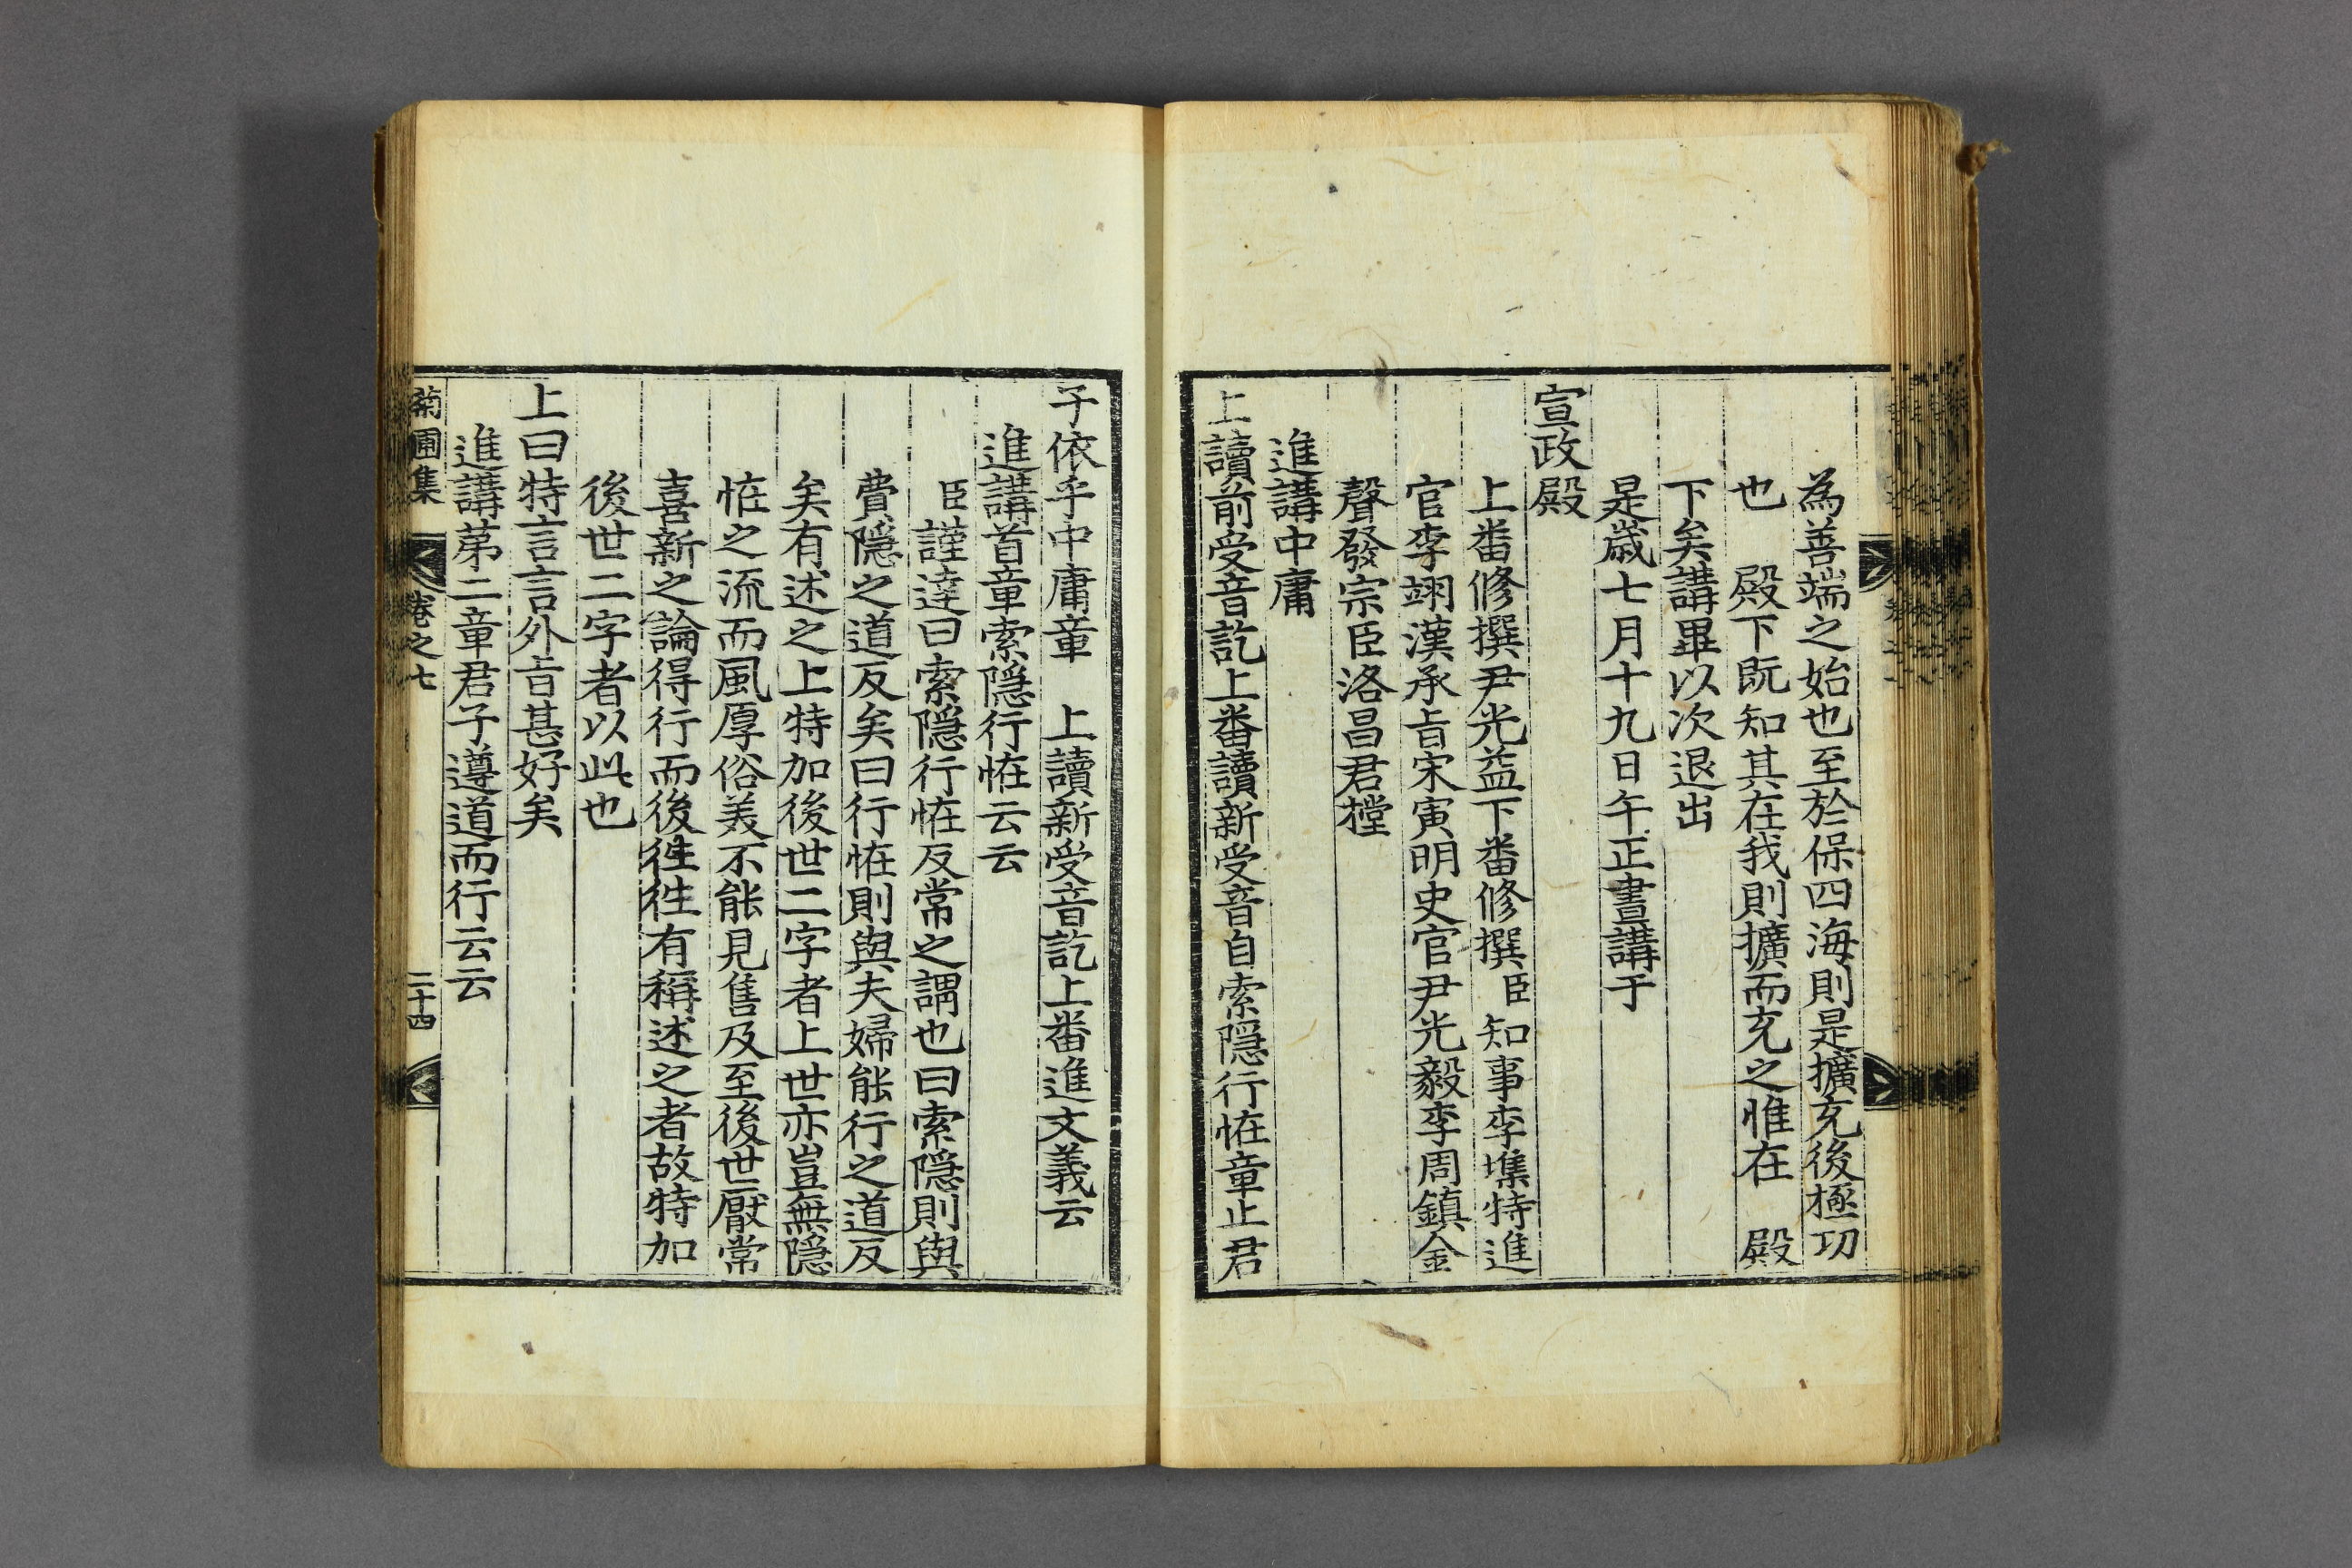 為善端之始也至於保四海則是擴充後極功
也　殿下既知其在我則擴而充之惟在　殿
下矣講畢以次退出
是歲七月十九日午正晝講于
宣政殿
上番修撰尹光益下番修撰臣知事李㙫特進
官李翊漢承旨宋寅明史官尹光毅李周鎮金
聲發宗臣洛昌君樘
進講中庸
上讀前受音訖上番讀新受音自索隱行恠章止君
子依乎中庸章　上讀新受音訖上番進文義云
進講首章索隱行恠云云
臣謹達曰索隱行恠反常之謂也曰索隱則與
費隱之道反矣曰行恠則與夫婦能行之道反
矣有述之上特加後世二字者上世亦豈無隱
恠之流而風厚俗美不能見售及至後世厭常
喜新之論得行而後徃徃有稱述之者故特加
後世二字者以此也
上曰特言言外旨甚好矣
進講第二章君子遵道而行云云
菊圃集　卷之七　二十四